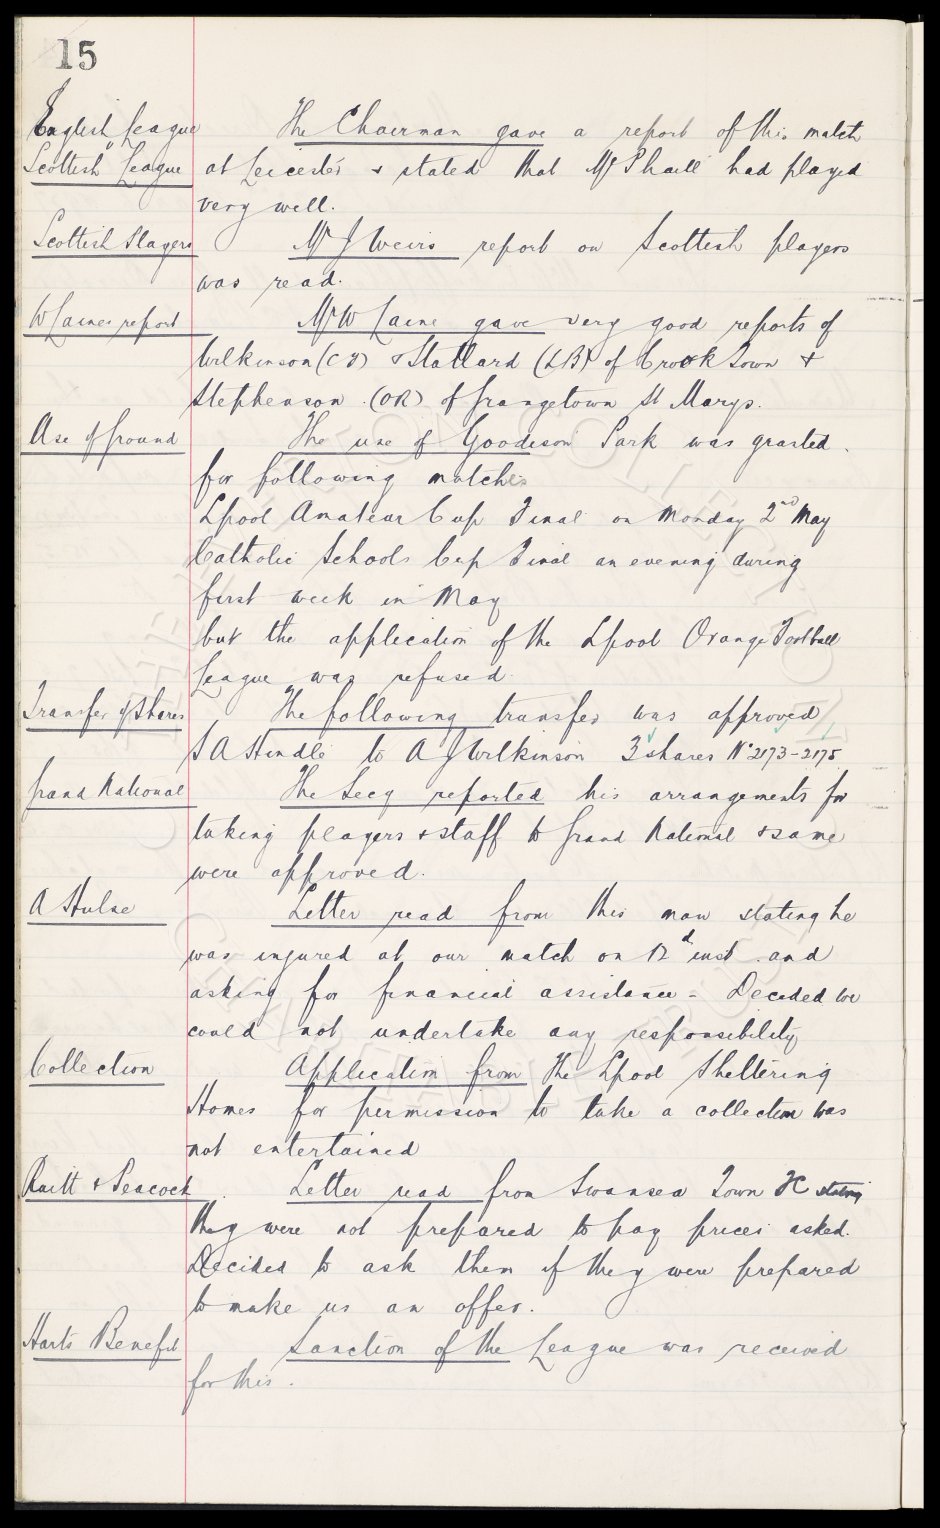 15
English League
"
Scottish League
The Chairman gave a report of this match
at Leicester & stated that McPhail had played
very well.
Scottish Players
Mr J Weirs report on Scottish players
was read.
W Laines report
Mr W Laine gave very good reports of
Wilkinson (CF) & Stallard (LB) of Crook Town &
Stephenson (OR) of Grangetown St Marys.
Use of Ground
The use of Goodison Park was granted
for following matches
Lpool Amateur Cup Final on Monday 2nd May
Catholic Schools Cup Final an evening during
first week in May
but the application of the Lpool Orange Football
League was refused.
Transfer of Shares
The following transfer was approved
S A Hindle to A J Wilkinson 3 shares No 2173-2175
Grand National
The Secy reported his arrangements for
taking players & staff to Grand National & same
were approved.
A Hulse
Letter read from this man stating he
was injured at our match on 12th inst. and
asking for financial assistance - Decided we
could not undertake any responsibility
Collection
Application from the Lpool Sheltering
Homes for permission to take a collection was
not entertained
Raitt & Peacock
Letter read from Swansea Town FC stating
they were not prepared to pay prices asked.
Decided to ask them if they were prepared
to make us an offer.
Harts Benefit
Sanction of the League was received
for this.